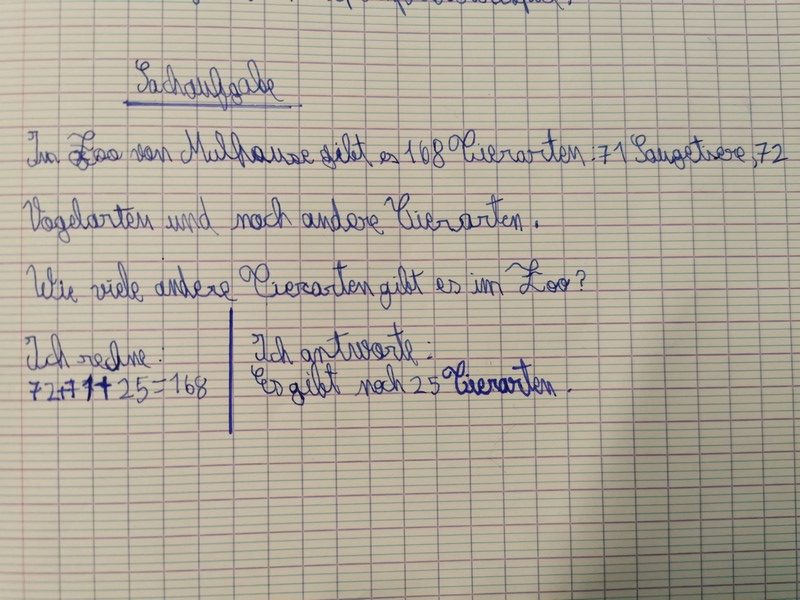 Sachaufgabe
Im Zoo von Mulhouse gibt es 168 Tierarten : 71 Saugetiere, 72
Vogelarten und noch andere Tierarten.
Wie viele andere Tierarten gibt es im Zoo?
Ich rechne :
72+71+25=168
Ich antworte :
Es gibt noch 25 Tierarten.